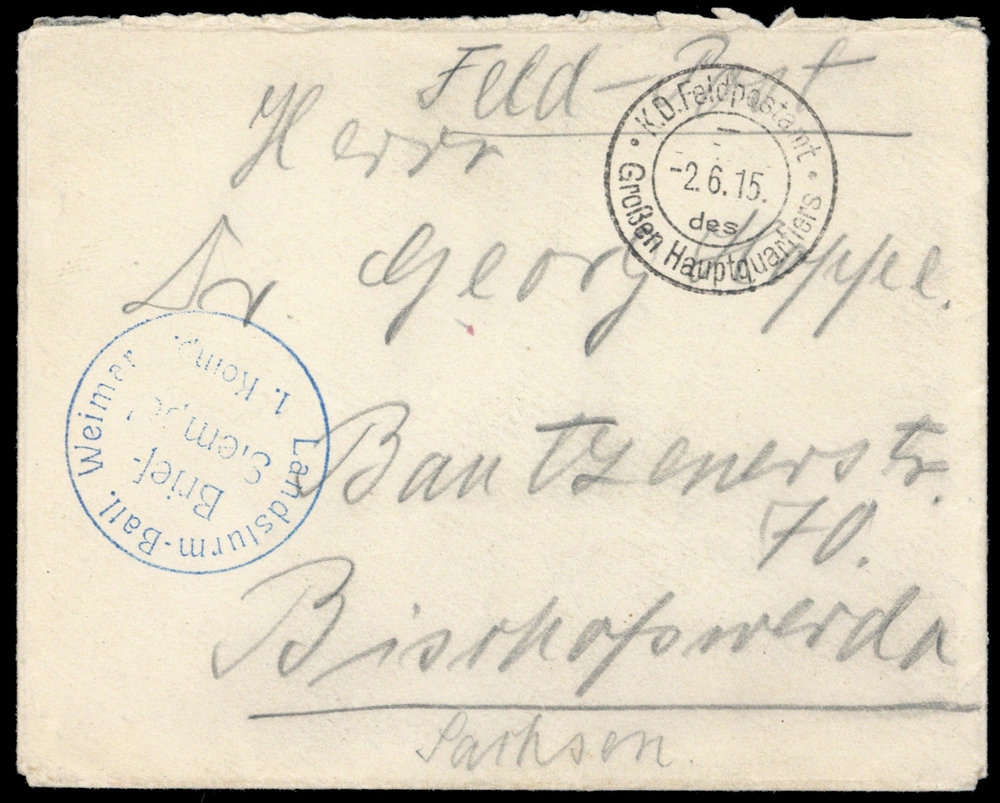 Feld-Post
Herrn
Dr. Georg Hoppe.
Bautzenerstr.
70.
Bischofswerda
Sachsen.
K.D. Feldpostamt
-2.6.15.
des
Großen Hauptquartiers
Landsturm-Batl. Weimar
Brief-
Stempel
1. Komp.